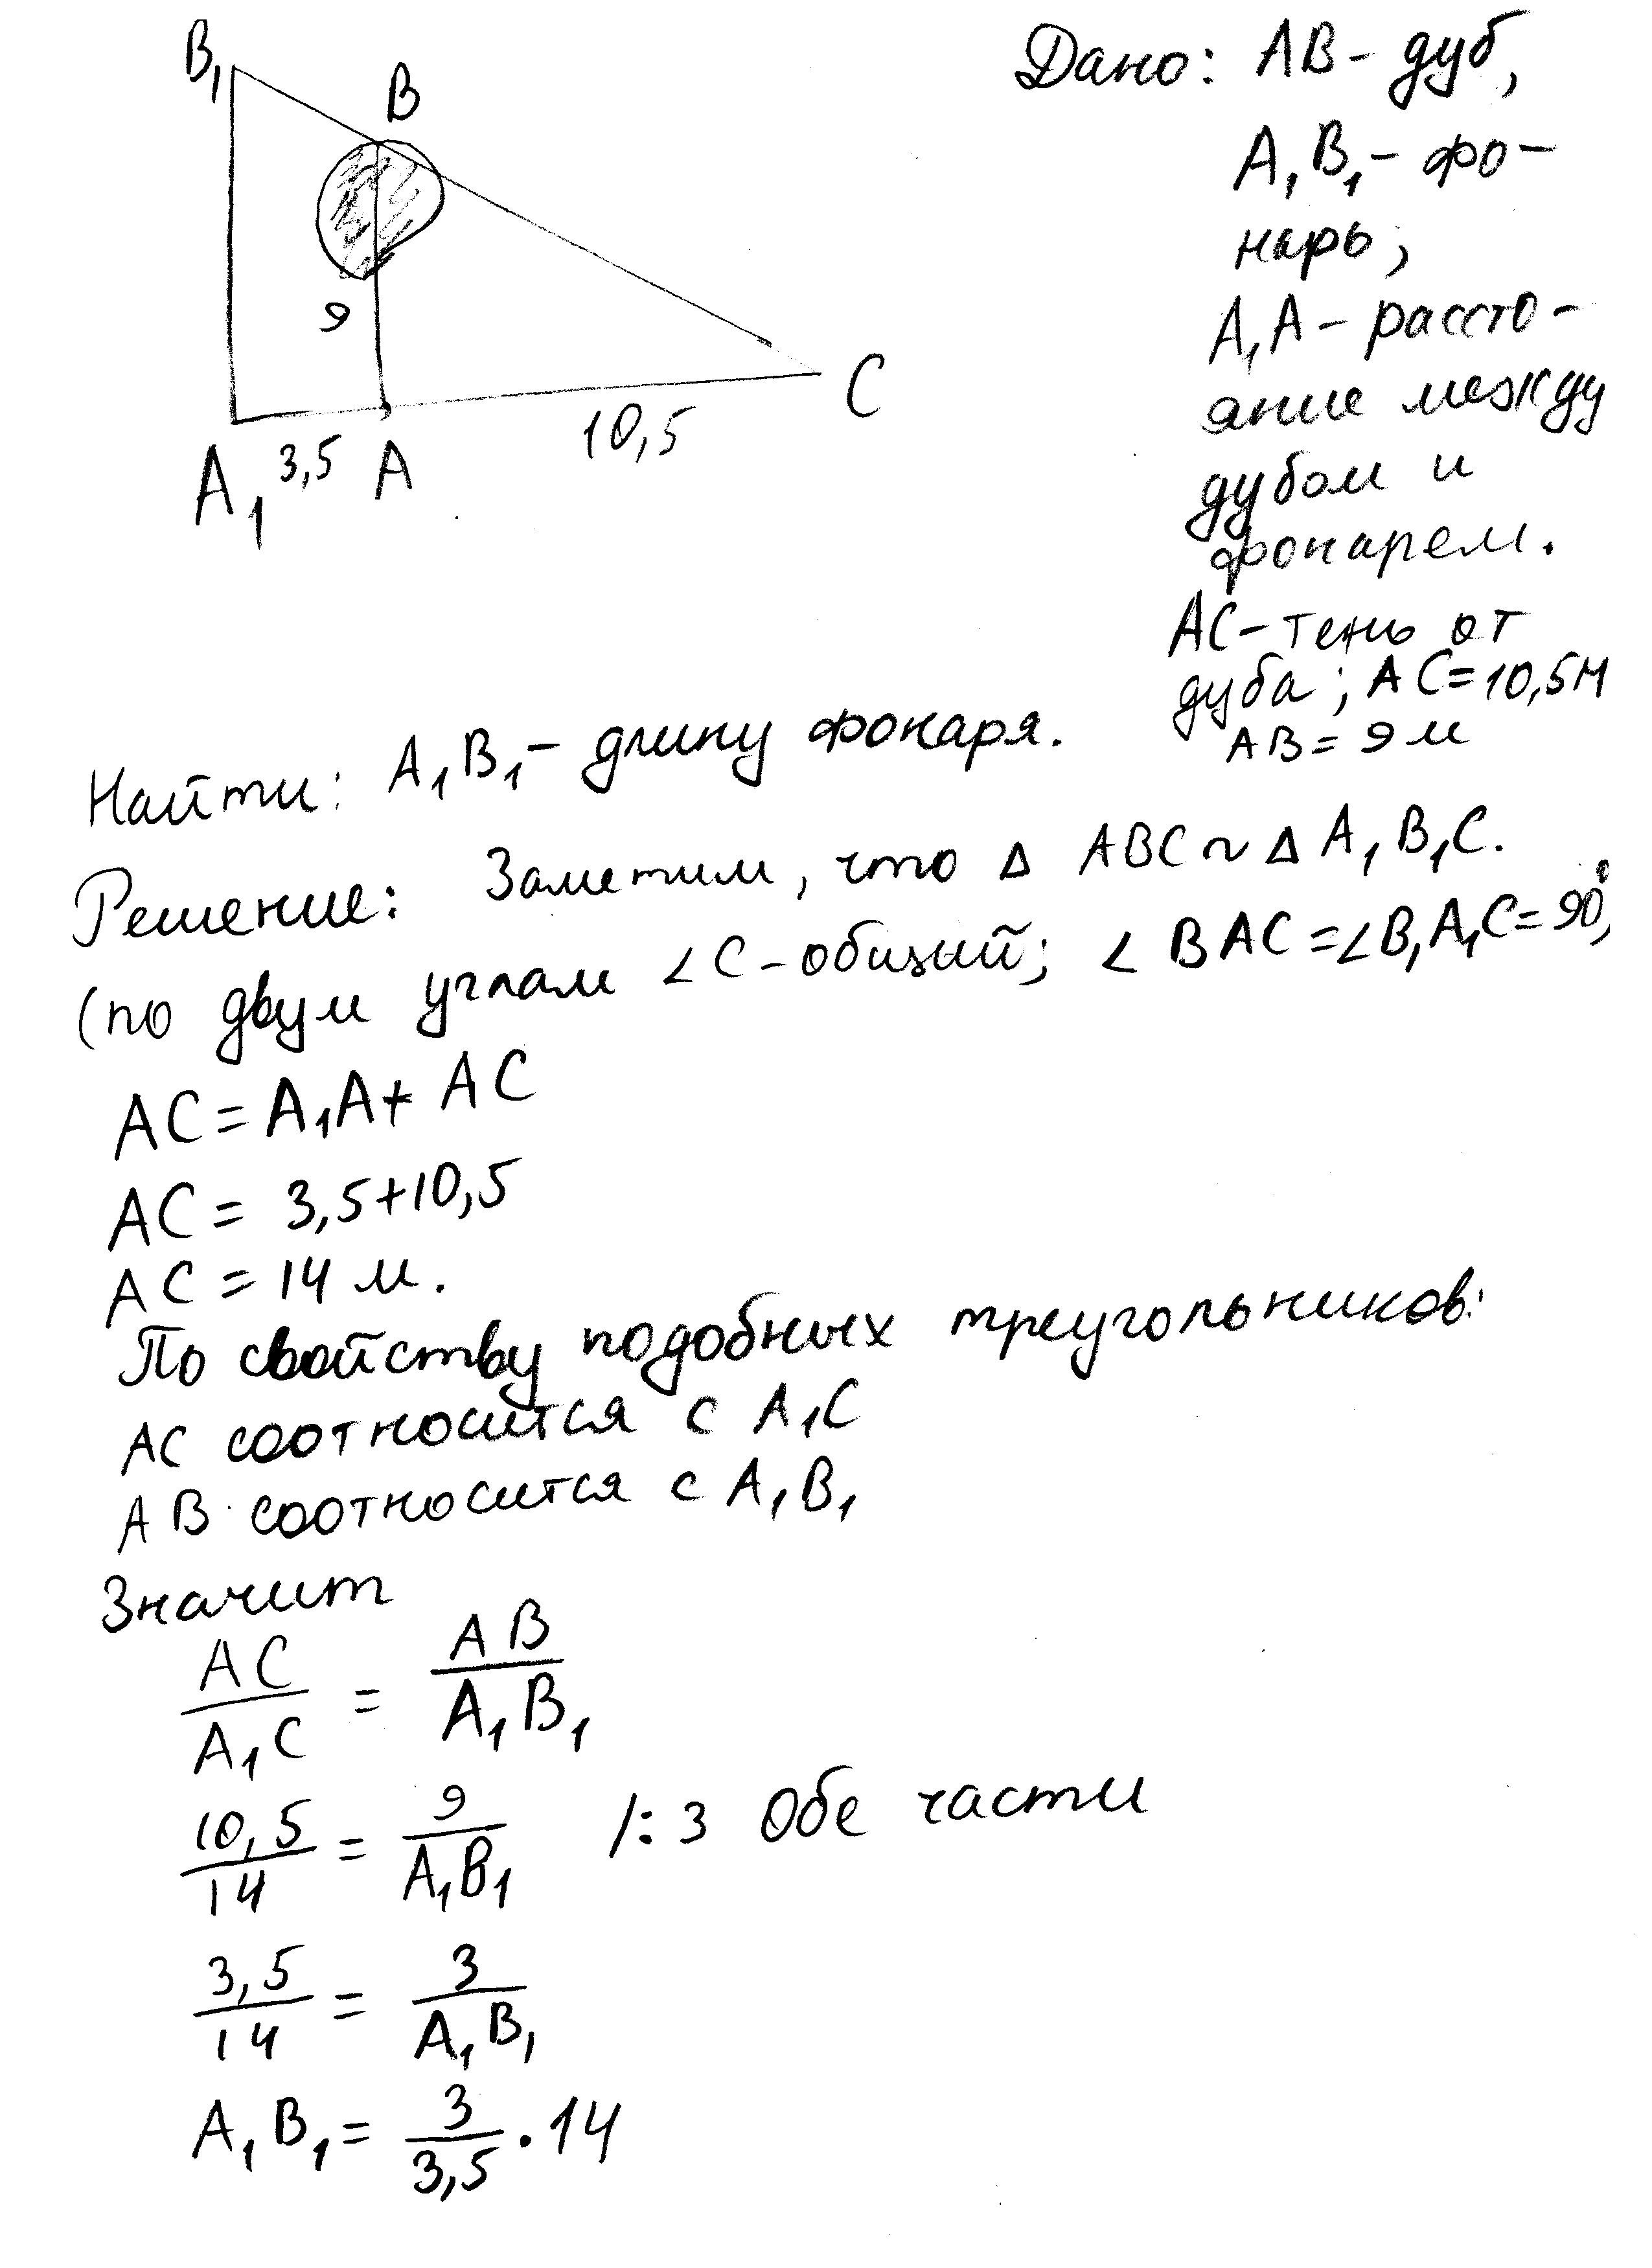 B₁
B
9
A₁ 3,5 A
10,5
C
Дано: AB – дуб,
A₁B₁ – фо-
нарь,
A₁A – рассто-
яние между
дубом и
фонарем.
AC – тень от
дуба; AC = 10,5 м
AB = 9 м
Найти: A₁B₁ – длину фонаря.
Решение: Заметим, что Δ ABC ~ Δ A₁B₁C.
(по двум углам ∠C – общий; ∠BAC = ∠B₁A₁C = 90°,
AC = A₁A + AC
AC = 3,5 + 10,5
AC = 14 м.
По свойству подобных треугольников:
AC соотносится с A₁C
AB соотносится с A₁B₁
Значит
AC/A₁C = AB/A₁B₁
10,5/14 = 9/A₁B₁ /:3 Обе части
3,5/14 = 3/A₁B₁
A₁B₁ = 3/3,5 · 14